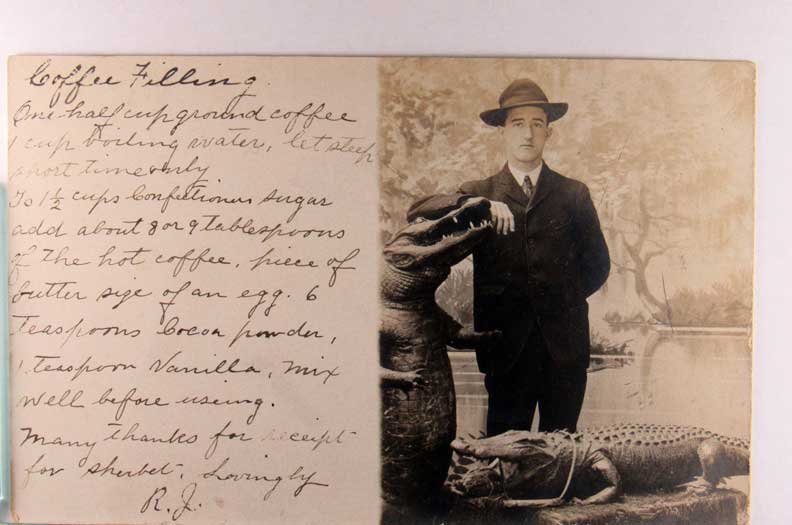 Coffee Filling.
One-half cup ground coffee
1 cup boiling water, let steep
short time only
To 1½ cups Confectioners sugar
add about 8 or 9 tablespoons
of the hot coffee, piece of
butter size of an egg. 6
teaspoons Cocoa powder,
1 teaspoon Vanilla, Mix
well before useing.
Many thanks for receipt
for sherbet. Lovingly
R. J.